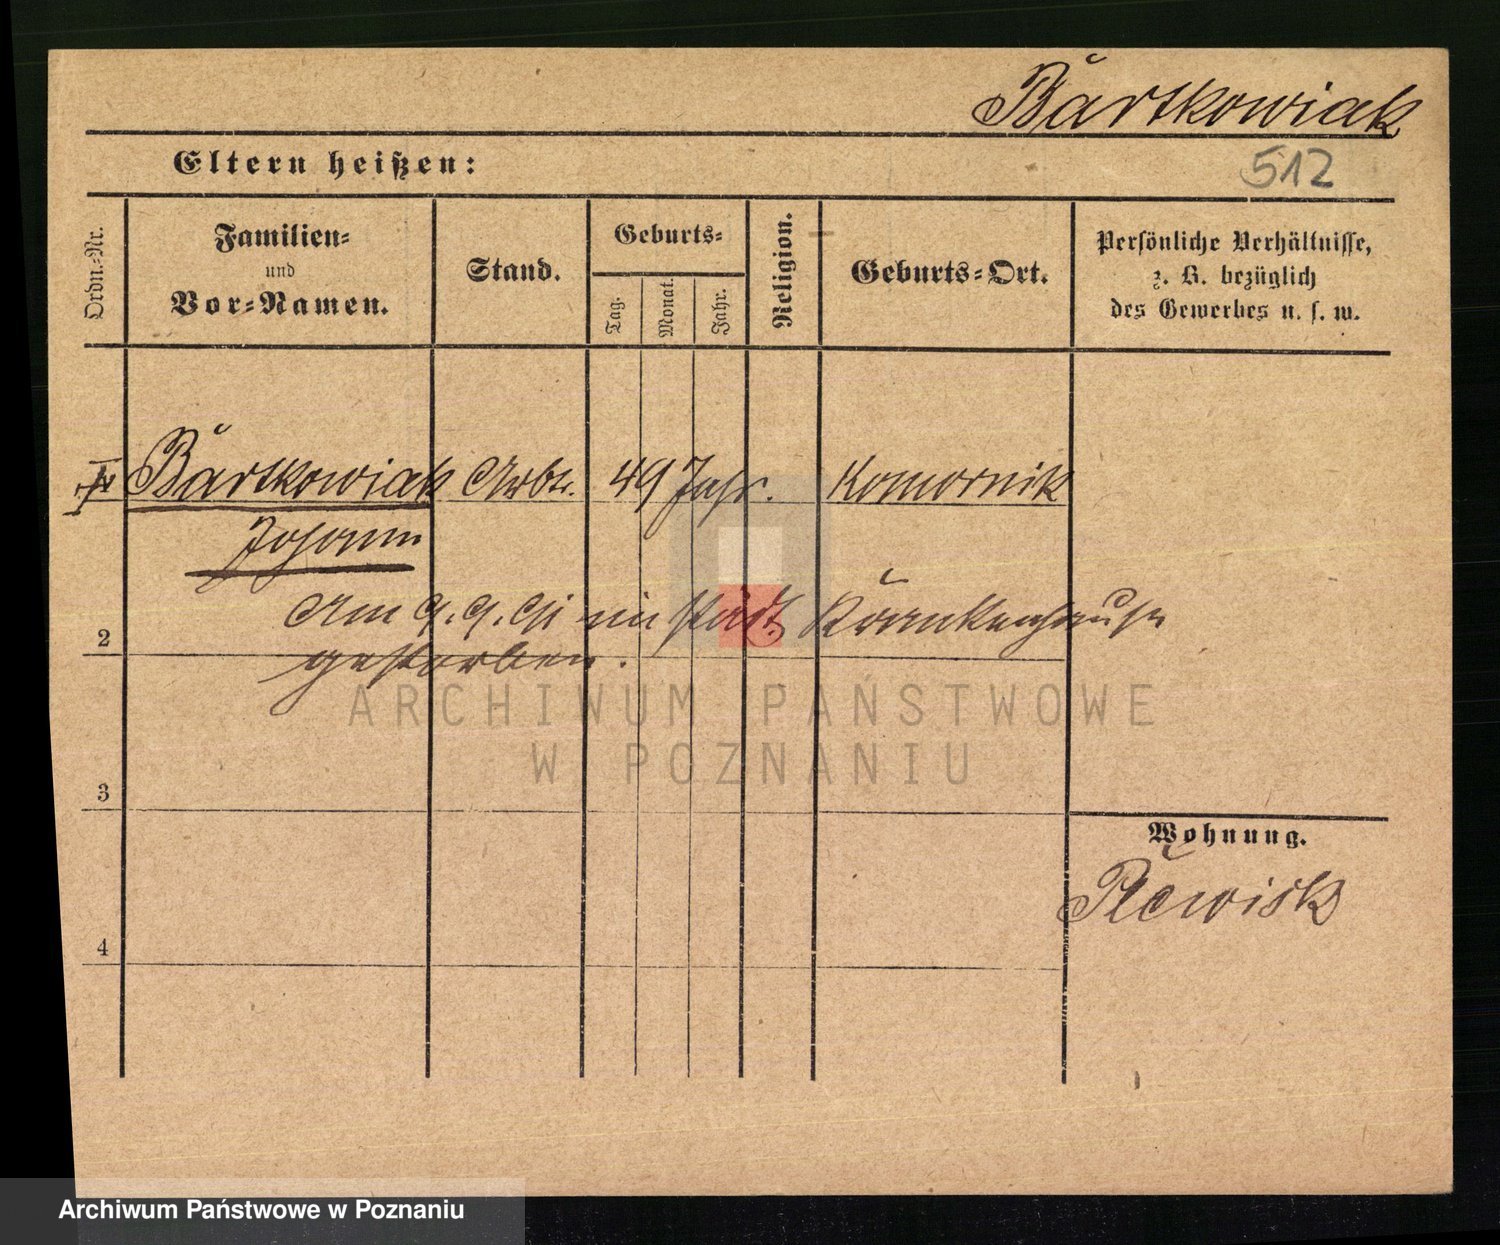 Bartkowiak
Eltern heißen:
512
Ordn.-Nr.
Familien-
und
Vor-Namen.
Stand.
Geburts-
Tag.
Monat.
Jahr.
Religion.
Geburts-Ort.
Persönliche Verhältnisse,
z. B. bezüglich
des Gewerbes u. s. w.
Bartkowiak Arbtr. 49 Jahr. Komornik
Johann
Am 9.9. im städt. Krankenhause
2
gestorben.
ARCHIWUM PAŃSTWOWE
W POZNANIU
3
Wohnung.
Plewisk
4
Archiwum Państwowe w Poznaniu